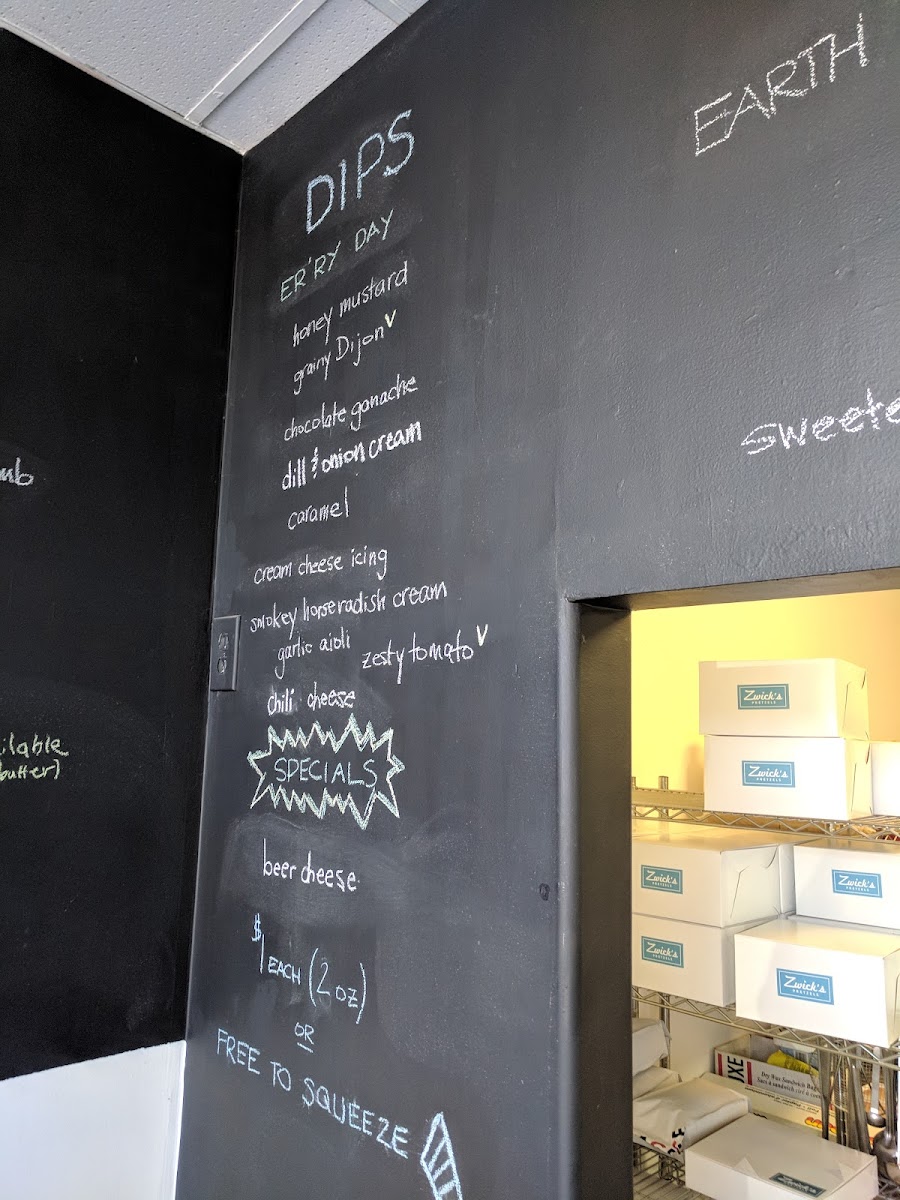 DIPS
ER'RY DAY
honey mustard
grainy Dijon V
chocolate ganache
dill & onion cream
caramel
cream cheese icing
smokey horseradish cream
garlic aioli
zesty tomato V
chili cheese
SPECIALS
beer cheese
$1 EACH (2 oz)
OR
FREE TO SQUEEZE
EARTH
sweete
mb
ilable
butter)
Zwick's
PRETZELS
Zwick's
PRETZELS
Zwick's
PRETZELS
Zwick's
PRETZELS
Zwick's
PRETZELS
Zwick's
PRETZELS
UXE
Dry Wax Sandwich Bags